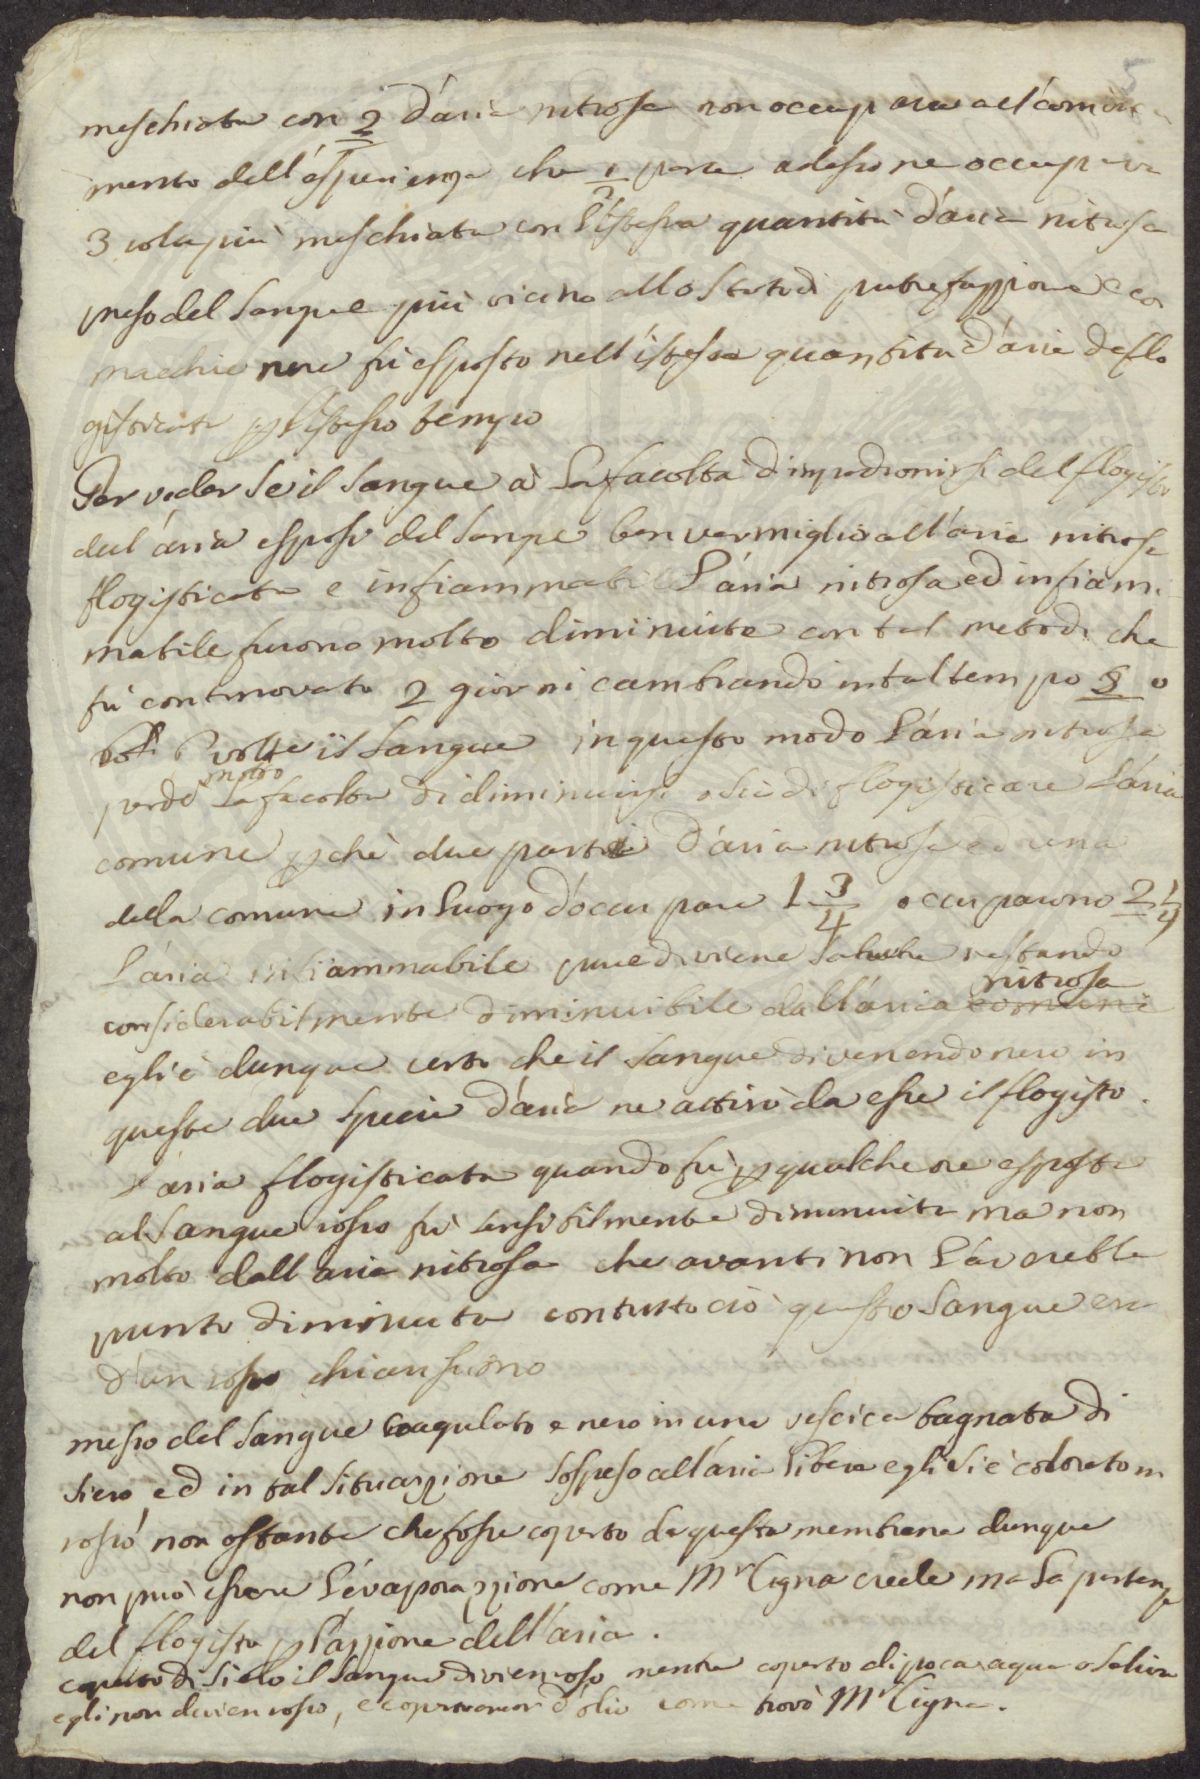 5
meschiata con 2 d'aria nitrosa non occupava al comin
mento dell'esperienza che 1/2 parte adesso ne occupava
3 volte più meschiata con l'istessa quantità d'aria nitrosa
preso del sangue più vicino allo stato di putrefazzione e con
macchie nere fù esposto nell'istessa quantità d'aria deflo
gisticata p l'istesso tempo
Per veder se il sangue à la facoltà d'impadronirsi del flogisto
dell'aria esposi del sangue ben vermiglio all'aria nitrosa
flogisticata e infiammabile L'aria nitrosa ed infiam
mabile furono molto diminuite con tal metodo che
fù continovato 2 giorni cambiando in tal tempo 5 o
6 volte il sangue in questo modo l'aria nitrosa
molto
perdè la facoltà di diminuirsi o sia di flogisticare l'aria
comune p chè due parti d'aria nitrosa ed una
della comune in luogo d'occupare 1 3/4 occuparono 2 1/4
L'aria infiammabile pure diviene salubre restando
nitrosa
considerabilmente diminuibile dall'aria comune
egli è dunque certo che il sangue divenendo nero in
queste due specie d'aria ne attirò da esse il flogisto.
L'aria flogisticata quando fù p qualche ore esposta
al sangue rosso fù sensibilmente diminuita ma non
molto dall'aria nitrosa che avanti non l'averebbe
punto diminuita contuttociò questo sangue era
d'un rosso chiarissimo
messo del sangue coagulato e nero in una vescica bagnata di
siero, ed in tal situazzione sospeso all'aria libera egli si è colorato in
rosso non ostante che fosse coperto da questa membrana dunque
non può essere l'evaporazzione come Mr Cigna crede ma la partenza
del flogisto p l'azzione dell'aria.
coperto di siero il sangue divien rosso mentre coperto di poca aqua o saliva
egli non divien rosso, e coperto d'olio come trovò Mr Cigna.